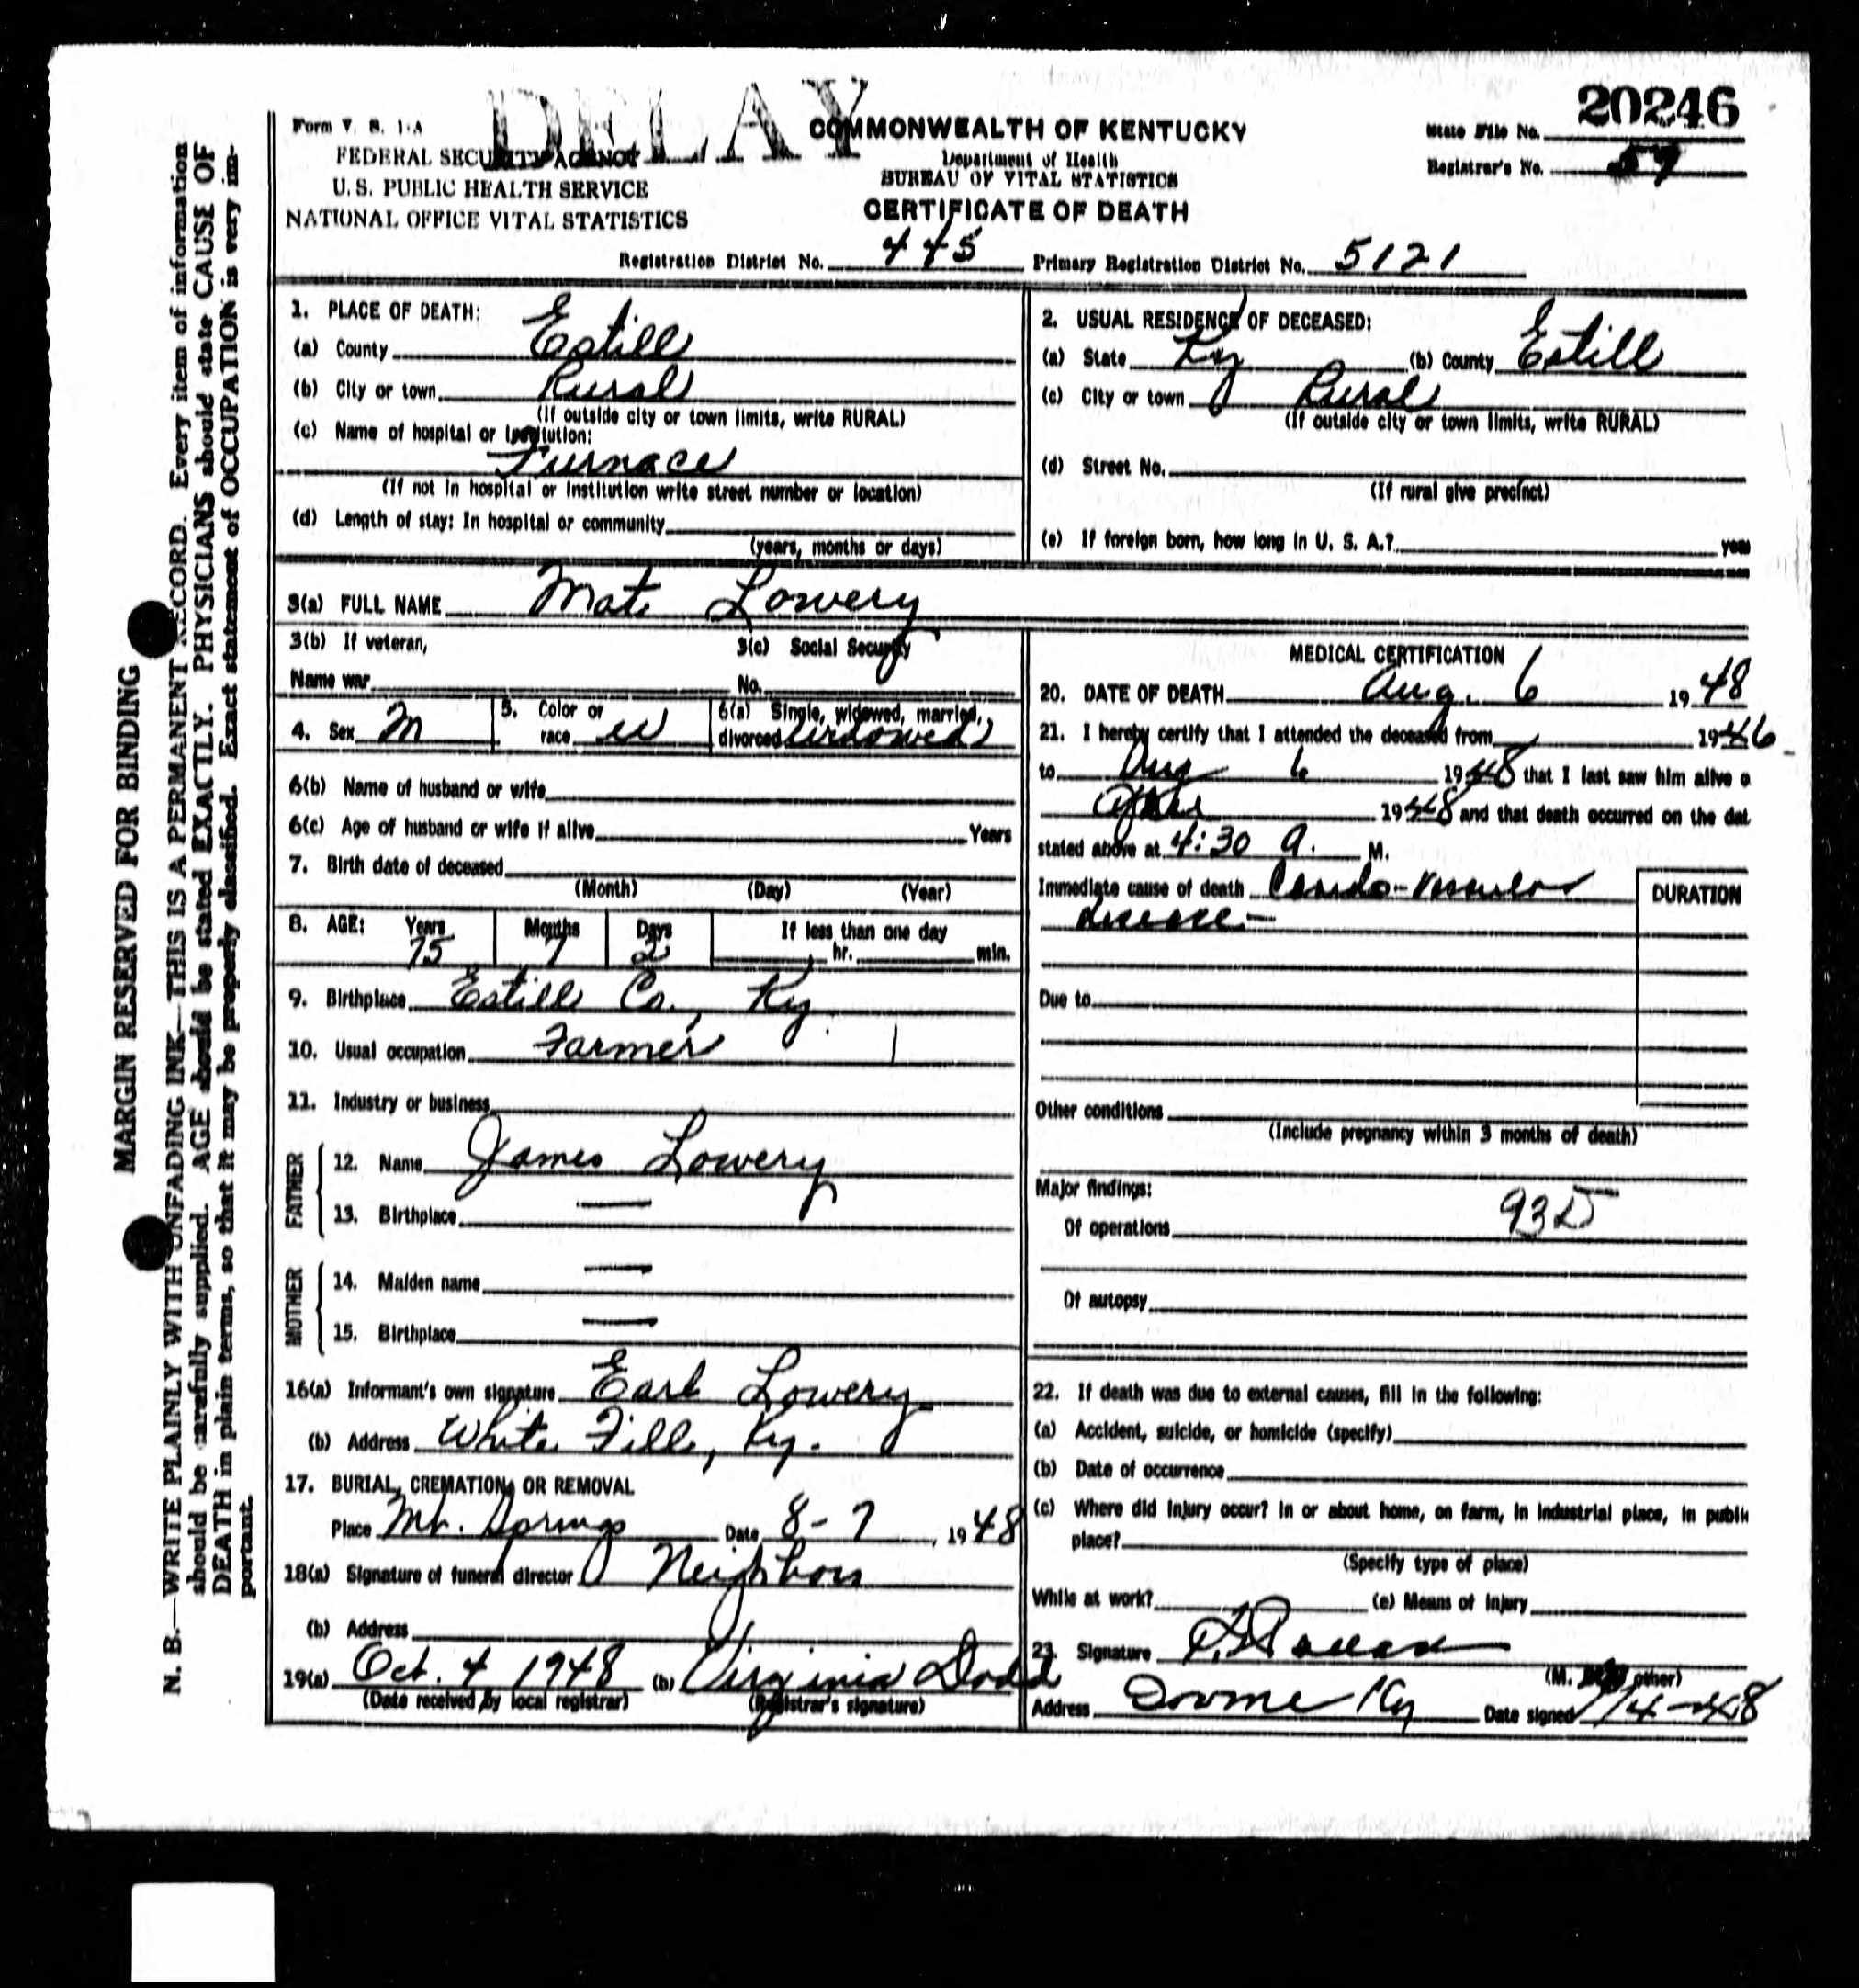 DELAY
20246
Form V. S. 1-A
COMMONWEALTH OF KENTUCKY
State File No.
FEDERAL SECURITY AGENCY
Department of Health
Registrar's No. 57
U. S. PUBLIC HEALTH SERVICE
BUREAU OF VITAL STATISTICS
NATIONAL OFFICE VITAL STATISTICS
CERTIFICATE OF DEATH
Registration District No. 445 Primary Registration District No. 5121
MARGIN RESERVED FOR BINDING
N. B.—WRITE PLAINLY WITH UNFADING INK—THIS IS A PERMANENT RECORD. Every item of information
should be carefully supplied. AGE should be stated EXACTLY. PHYSICIANS should state CAUSE OF
DEATH in plain terms, so that it may be properly classified. Exact statement of OCCUPATION is very im-
portant.
1. PLACE OF DEATH:
(a) County Estill
(b) City or town Rural
(If outside city or town limits, write RURAL)
(c) Name of hospital or institution:
Furnace
(If not in hospital or institution write street number or location)
(d) Length of stay: In hospital or community
(years, months or days)
2. USUAL RESIDENCE OF DECEASED:
(a) State Ky (b) County Estill
(c) City or town Rural
(If outside city or town limits, write RURAL)
(d) Street No.
(If rural give precinct)
(e) If foreign born, how long in U. S. A.? year
3(a) FULL NAME Mat Lowery
3(b) If veteran, 3(c) Social Security
Name war No.
4. Sex M 5. Color or race W 6(a) Single, widowed, married, divorced widowed
6(b) Name of husband or wife
6(c) Age of husband or wife if alive Years
7. Birth date of deceased
(Month) (Day) (Year)
8. AGE: Years Months Days If less than one day
75 7 2 hr. min.
9. Birthplace Estill Co., Ky.
10. Usual occupation Farmer
11. Industry or business
FATHER
12. Name James Lowery
13. Birthplace —
MOTHER
14. Maiden name —
15. Birthplace —
16(a) Informant's own signature Earl Lowery
(b) Address White Fill, Ky.
17. BURIAL, CREMATION, OR REMOVAL
Place Mt. Springs Date 8-7, 1948
18(a) Signature of funeral director Neighbors
(b) Address
19(a) Oct. 4 1948 (b) Virginia Dodd
(Date received by local registrar) (Registrar's signature)
MEDICAL CERTIFICATION
20. DATE OF DEATH Aug. 6 1948
21. I hereby certify that I attended the deceased from 1946
to Aug 6 1948 that I last saw him alive o
1948 and that death occurred on the dat
stated above at 4:30 A. M.
Immediate cause of death Cardio-Vascular DURATION
disease—
Due to
Other conditions
(Include pregnancy within 3 months of death)
Major findings:
93D
Of operations
Of autopsy
22. If death was due to external causes, fill in the following:
(a) Accident, suicide, or homicide (specify)
(b) Date of occurrence
(c) Where did injury occur? In or about home, on farm, in industrial place, in public
place?
(Specify type of place)
While at work? (e) Means of injury
23. Signature
(M. other)
Address Ky Date signed